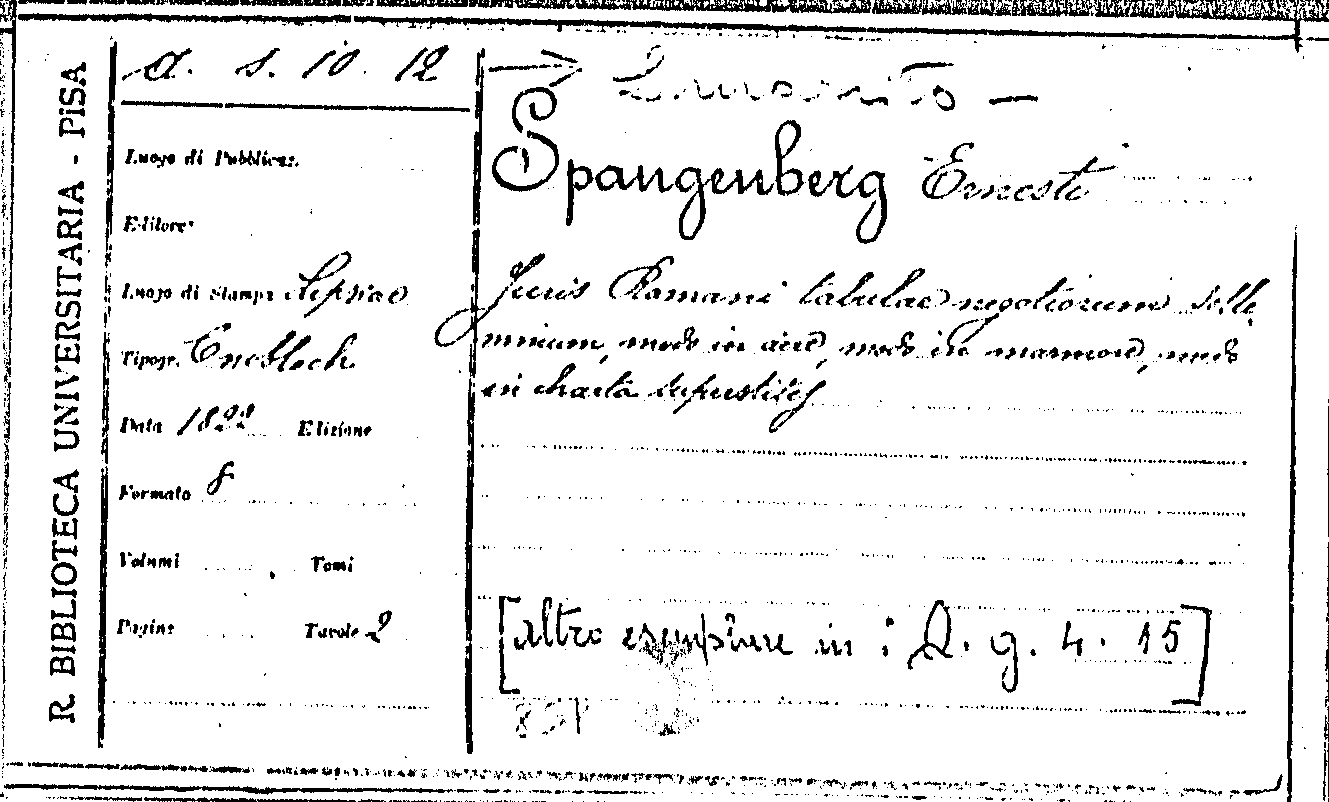 R. BIBLIOTECA UNIVERSITARIA - PISA
a. s. 10. 12
Luogo di Pubblicaz.
Editore
Luogo di Stampa Lipsiae
Tipogr. Cnobloch
Data 1822 Edizione
Formato 8
Volumi Tomi
Pagine Tavole 2
Spangenberg Ernesti
Juris Romani tabulae negotiorum solle
mnium, modo in aere, modo in marmore, modo
in charta superstites
[altro esemplare in: Q. g. 4. 15]